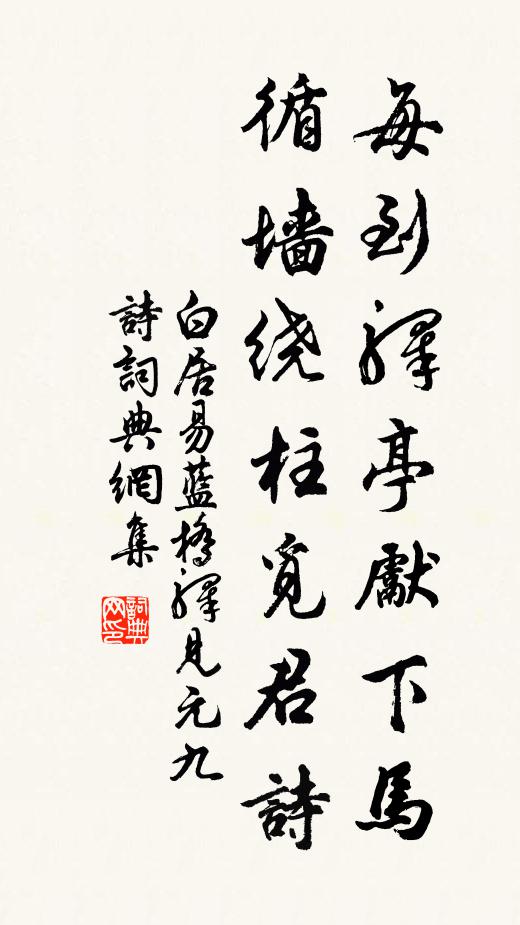 每到驛亭獻下馬
循墙绕柱覓君詩
白居易藍橋驛見元九
詩詞典網集
詞典网印